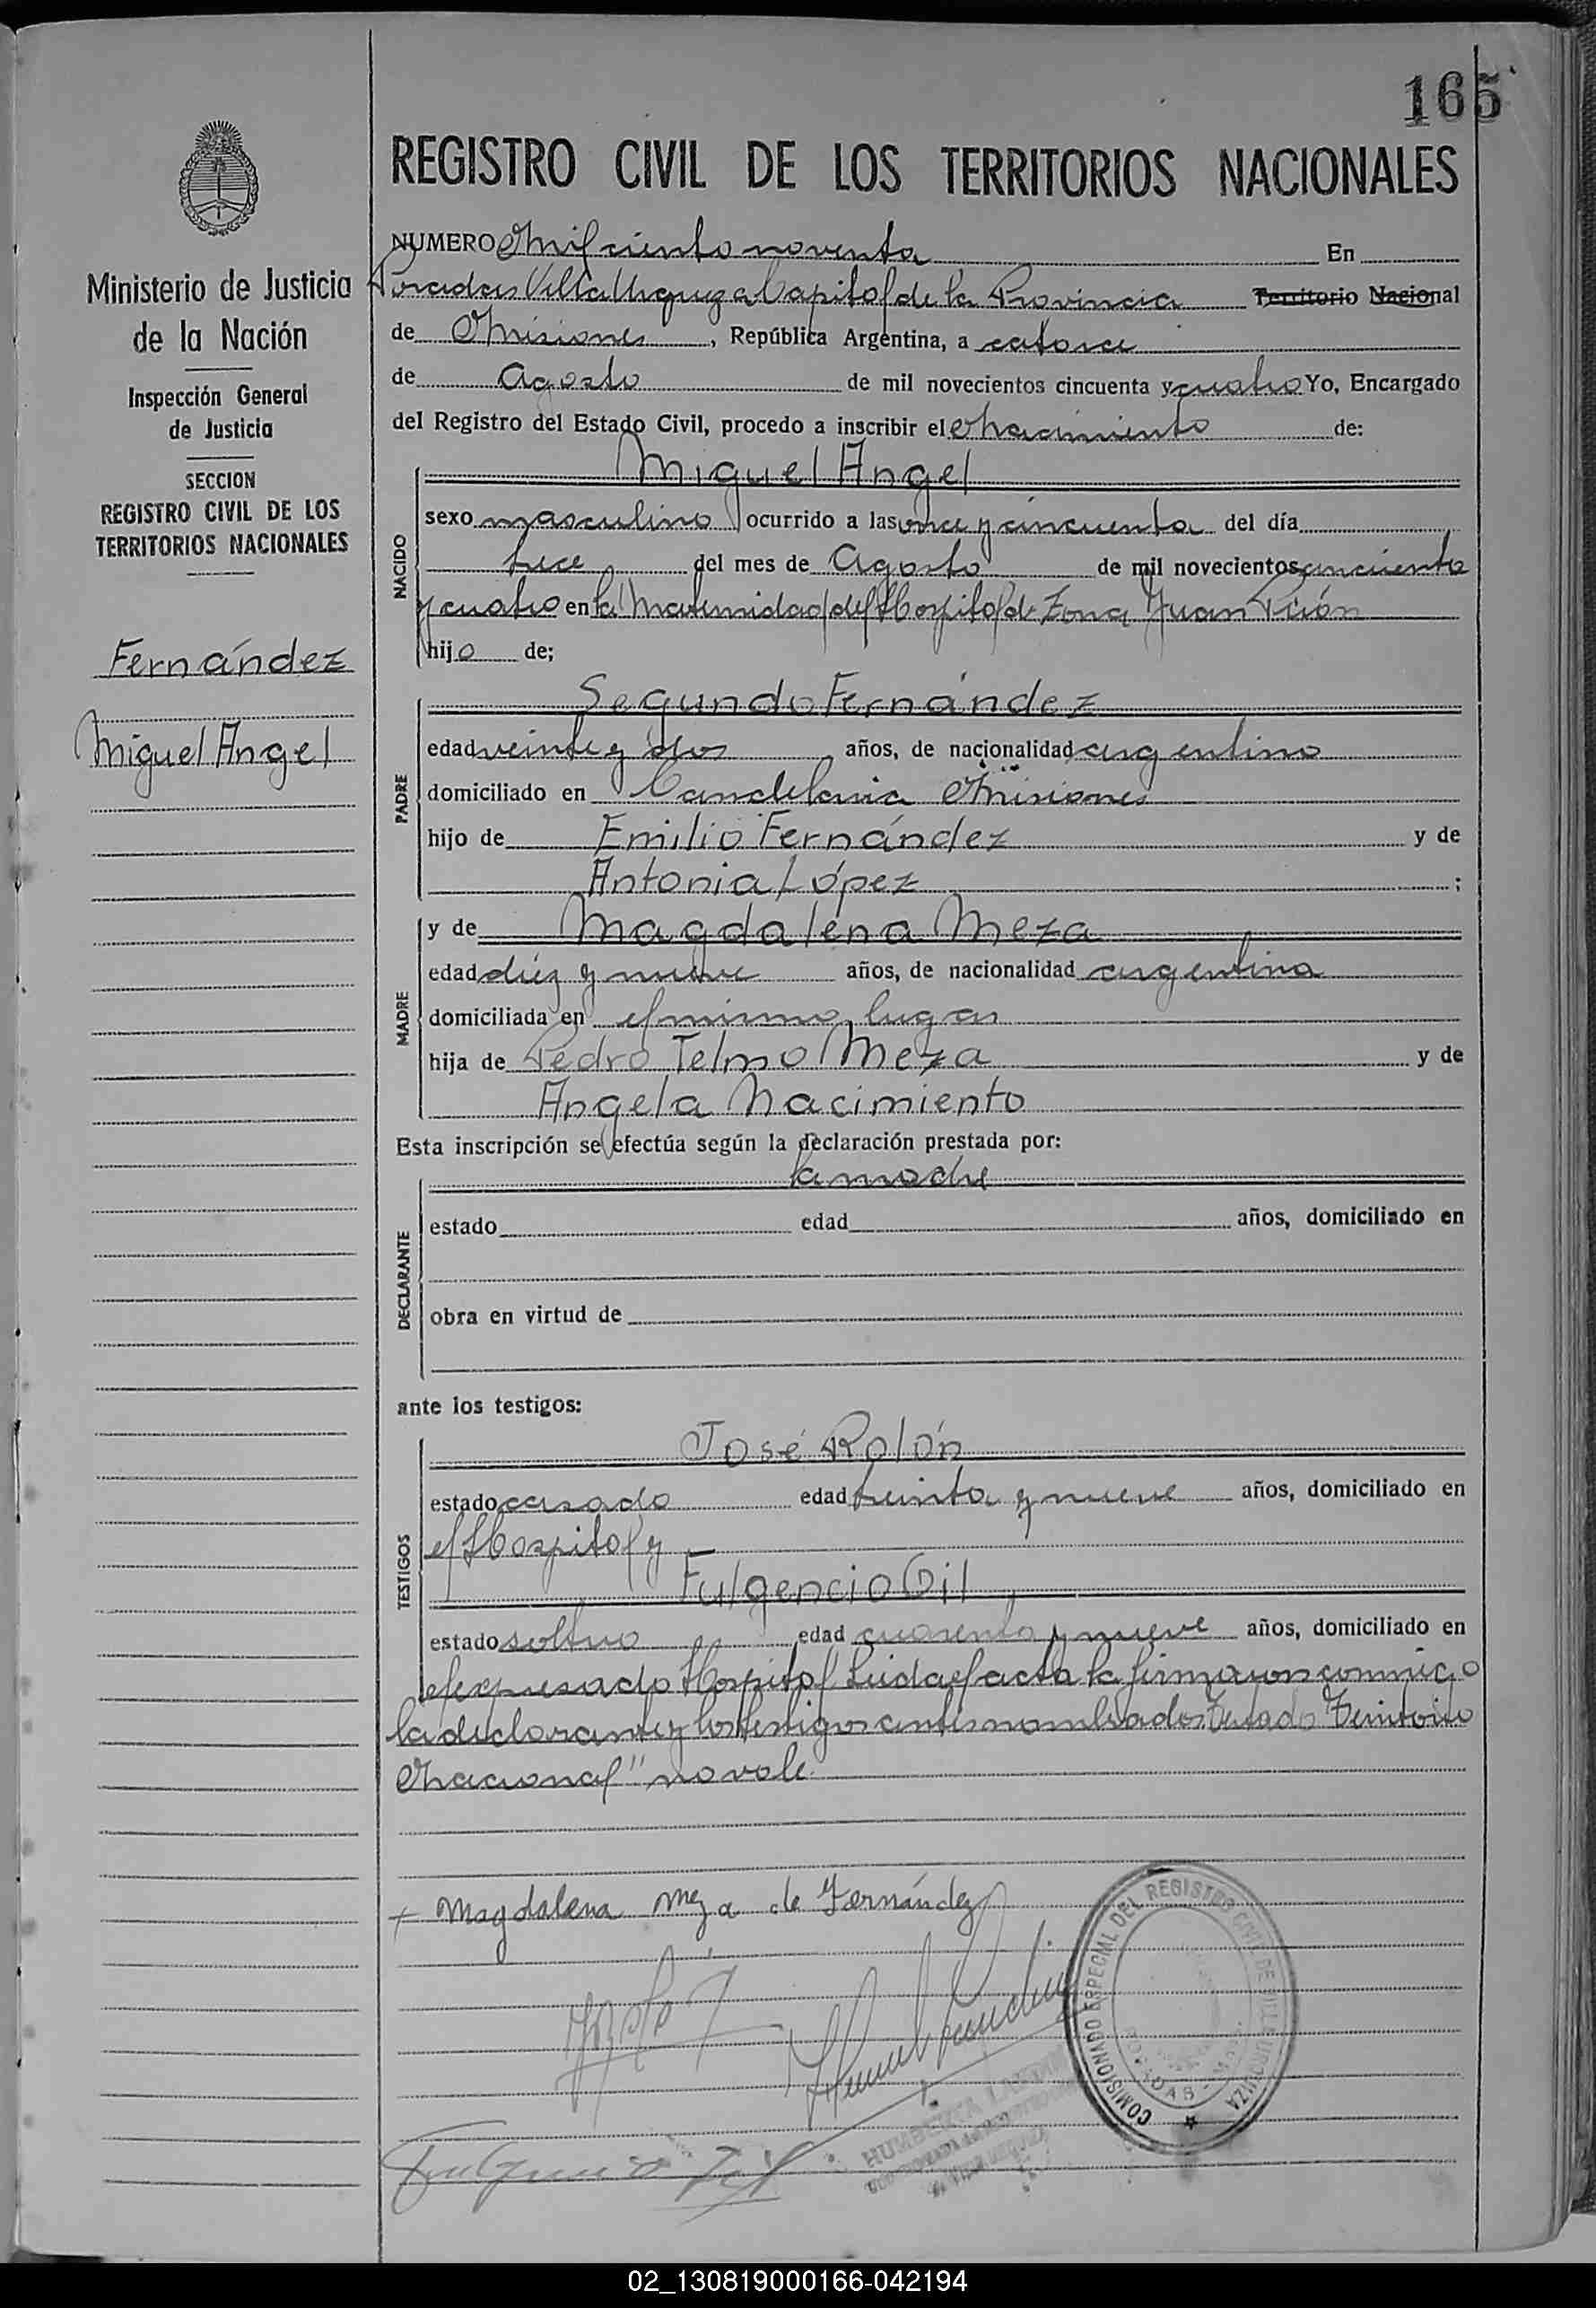 165
REGISTRO CIVIL DE LOS TERRITORIOS NACIONALES
Ministerio de Justicia
de la Nación
Inspección General
de Justicia
SECCION
REGISTRO CIVIL DE LOS
TERRITORIOS NACIONALES
Fernández
Miguel Angel
NUMERO Mil ciento noventa En
Posadas Villa Urquiza Capital de la Provincia Territorio Nacional
de Misiones, República Argentina, a catorce
de Agosto de mil novecientos cincuenta y cuatro Yo, Encargado
del Registro del Estado Civil, procedo a inscribir el Nacimiento de:
NACIDO
Miguel Angel
sexo masculino ocurrido a las once y cincuenta del día
trece del mes de Agosto de mil novecientos cincuenta
y cuatro en la Maternidad del Hospital de Zona Juan Perón
hijo de;
PADRE
Segundo Fernández
edad veinte y dos años, de nacionalidad argentino
domiciliado en Candelaria Misiones
hijo de Emilio Fernández y de
Antonia López ;
MADRE
y de Magdalena Meza
edad diez y nueve años, de nacionalidad argentina
domiciliada en el mismo lugar
hija de Pedro Telmo Meza y de
Angela Nacimiento
Esta inscripción se efectúa según la declaración prestada por:
DECLARANTE
la madre
estado edad años, domiciliado en
obra en virtud de
ante los testigos:
TESTIGOS
José Rolón
estado casado edad treinta y nueve años, domiciliado en
el Hospital y
Fulgencio Gil
estado soltero edad cuarenta y nueve años, domiciliado en
el expresado Hospital Leida el acta la firmaron conmigo
la declarante y los testigos antes nombrados Testado Territorio
Nacional" no vale.
Magdalena Meza de Fernández
COMISIONADO ESPECIAL DEL REGISTRO CIVIL DE VILLA URQUIZA
POSADAS
02_130819000166-042194